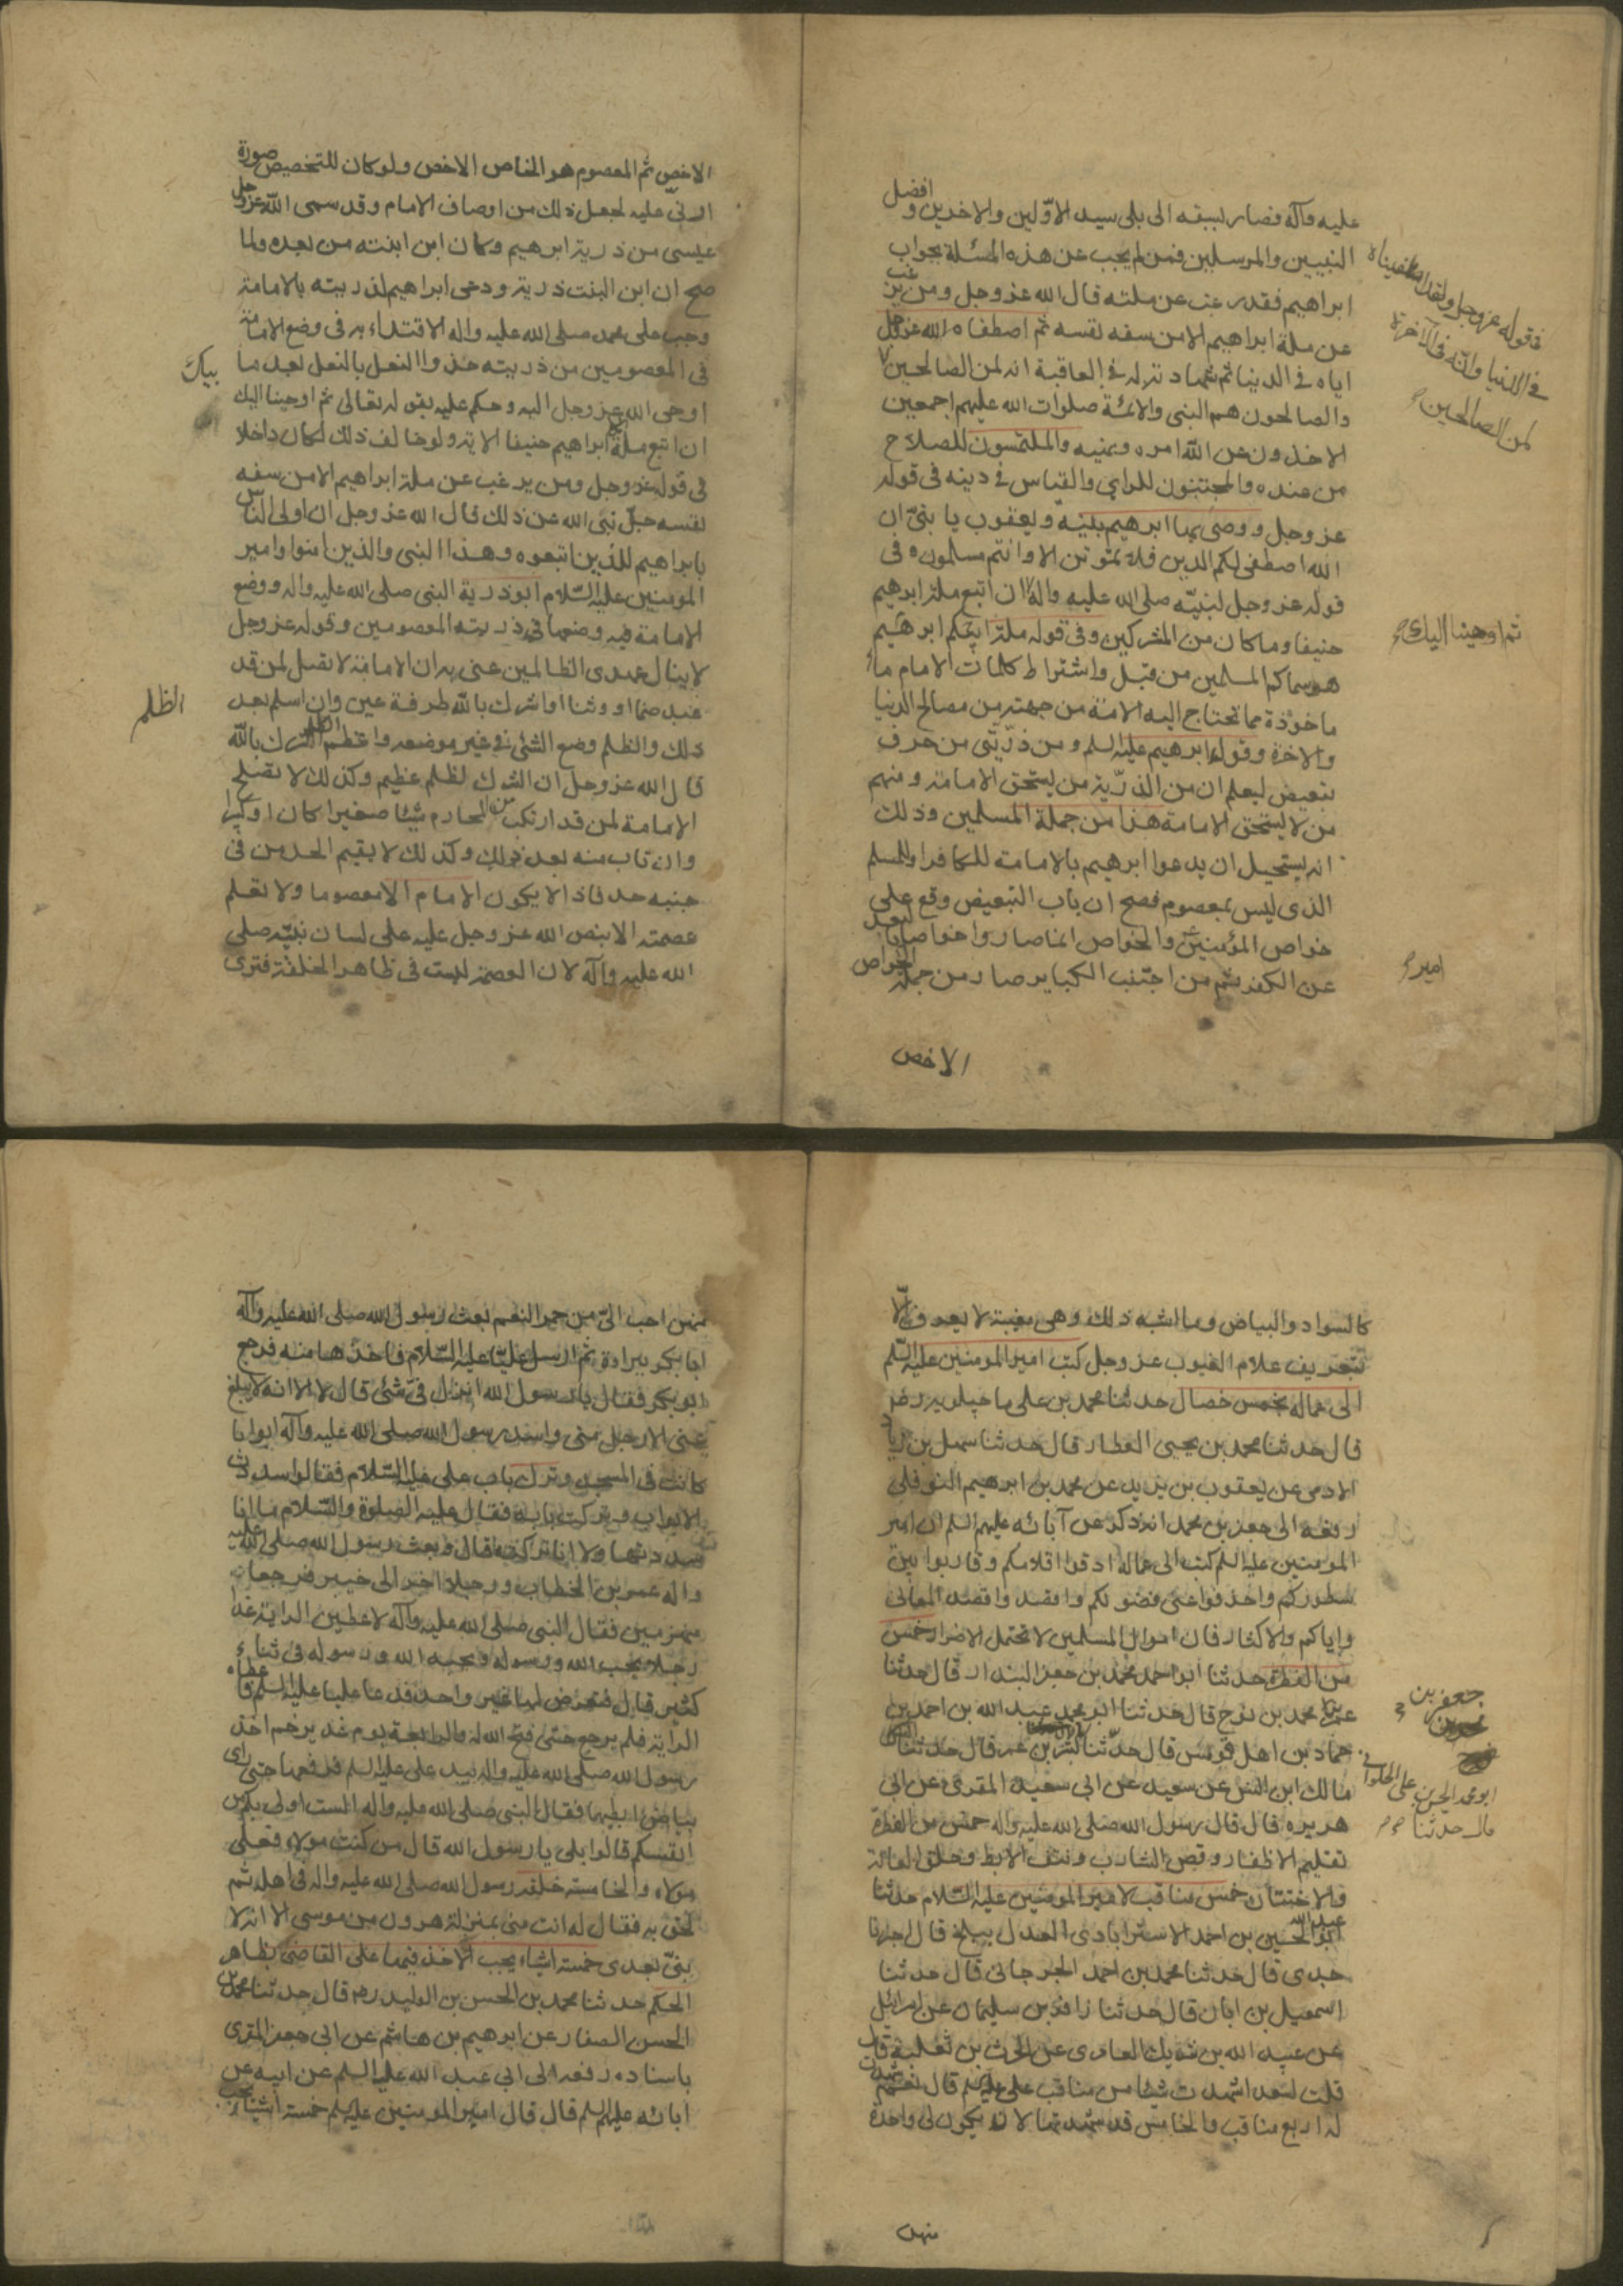 عليه وآله فصار بسبقه الى بلى سيد الاوّلين والاخرين و افضل
النبيين والمرسلين فمن لم يجب عن هذه المسئلة بجواب
ابراهيم فقد رغب عن ملته قال الله عز وجل ومن يرغب
عن ملة ابراهيم الا من سفه نفسه ثم اصطفاه الله عز وجل
اياه في الدنيا ثم شهادته له في العاقبة انه لمن الصالحين
والصالحون هم النبى والائمة صلوات الله عليهم اجمعين
الاخذون عن الله امره ونهيه والملتمسون للصلاح
من عنده والمجتنبون للراى والقياس في دينه في قوله
عز وجل ووصى بها ابرهيم بنيه ويعقوب يا بنىّ ان
الله اصطفى لكم الدين فلا تموتن الا وانتم مسلمون ه فى
قوله عز وجل لنبيّه صلى الله عليه واله ان اتبع ملة ابرهيم
حنيفا وما كان من المشركين وفى قوله ملة ابيكم ابرهيم
هو سماكم المسلمين من قبل واشتراط كلمات الامام ما
ماخوذة مما تحتاج اليه الامة من جهته من مصالح الدنيا
والاخرة وقول ابرهيم عليه السلم ومن ذرّيّتى من حرف
تبعيض ليعلم ان من الذرّية من يستحق الامامة ومنهم
من لا يستحق الامامة هذا من جملة المسلمين وذلك
انه يستحيل ان يدعوا ابرهيم بالامامة للكافر او للمسلم
الذى ليس بمعصوم فصح ان باب التبعيض وقع على
خواص المؤمنين والخواص انما صاروا خواصا بالبعد
عن الكفر ثم من اجتنب الكباير صار من جملة الخواص
الاخص
فقوله عز وجل ولقد اصطفيناه
في الدنيا وانّه في الآخرة
لمن الصالحين
ثم اوحينا اليك
امير
الاخصّ ثم المعصوم هو الخاص الاخص ولو كان للتخصيص صورة
ادنى عليه لجعل ذلك من اوصاف الامام وقد سمى الله عز وجل
عيسى من ذرية ابرهيم وكان ابن ابنته من بعده ولما
صح ان ابن البنت ذرية ودعى ابراهيم لذريته بالامامة
وجب على محمد صلى الله عليه واله الاقتداء به فى وضع الامامة
فى المعصومين من ذريته حذو النعل بالنعل بعد ما
اوحى الله عز وجل اليه وحكم عليه بقوله تعالى ثم اوحينا اليك
ان اتبع ملة ابراهيم حنيفا الاية ولو خالف ذلك لكان داخلا
فى قوله عز وجل ومن يرغب عن ملة ابراهيم الا من سفه
نفسه جلّ نبى الله عن ذلك قال الله عز وجل ان اولى الناس
بابراهيم للذين اتبعوه وهذا النبى والذين امنوا وامير
المومنين عليه السّلام ابو ذرية النبى صلى الله عليه واله ووضع
الامامة فيه وضعها فى ذريته المعصومين وقوله عز وجل
لا ينال عهدى الظالمين عنى به ان الامامة لا تصلح لمن قد
عبد صنما او وثنا او اشرك بالله طرفة عين وان اسلم بعد
ذلك والظلم وضع الشئ في غير موضعه واعظم الظلم الشرك بالله
قال الله عز وجل ان الشرك لظلم عظيم وكذلك لا تصلح
الامامة لمن قد ارتكب من المحارم شيئا صغيرا كان او كبيرا
وان تاب منه بعد ذلك وكذلك لا يقيم الحد من فى
جنبه حد فاذا لا يكون الامام الا معصوما ولا تعلم
عصمته الا بنص الله عز وجل عليه على لسان نبيّه صلى
الله عليه وآله لان العصمة ليست فى ظاهر الخلقة فترى
الظلم
كالسواد والبياض وما اشبه ذلك وهى مغيبة لا يعرف الّا
بتعريف علام الغيوب عز وجل كتب امير المومنين عليه السّلم
الى عماله بخمس خصال حدثنا محمد بن على ماجيلويه رضـ
قال حدثنا محمد بن يحيى العطار قال حدثنا سهل بن زياد
الادمى عن يعقوب بن يزيد عن محمد بن ابرهيم النوفلى
رفعه الى جعفر بن محمد انه ذكر عن آبائه عليهم السلم ان امير
المومنين عليه السلم كتب الى عماله ادقوا اقلامكم وقاربوا بين
سطوركم واحذفوا عنى فضولكم واقصدوا قصد المعانى
واياكم والاكثار فان اموال المسلمين لا تحتمل الاضرار خمس
من الفطرة حدثنا ابو احمد محمد بن جعفر البندار قال حدثنا
محمد بن نوح قال حدثنا ابو محمد عبد الله بن احمد بن
حماد من اهل قومس قال حدّثنا
مالك ابن انس عن سعيد عن ابى سعيد المقرى عن ابى
هريره قال قال رسول الله صلى الله عليه واله خمس من الفطرة
تقليم الاظفار وقص الشارب ونتف الابط وحلق العانة
والاختتان خمس مناقب لامير المومنين عليه السّلام حدثنا
ابو عبد الله الحسين بن احمد الاسترابادى العدل ببلخ قال اخبرنا
جدى قال حدثنا محمد بن احمد الجرجانى قال حدثنا
اسمعيل بن ابان قال حدثنا زافر بن سليمان عن اسرائيل
عن عبيد الله بن شريك العامرى عن الحرث بن ثعلبة قال
قلت لسعد اشهدت شيئا من مناقب على عليه السلم قال نعم شهدت
له اربع مناقب والخامس قد شهدتها لان يكون لى واحدة
منهن
جعفر بن
ابو محمد الحسن بن على الحلوانى
قال حدثنا
منهن احب الىّ من حمر النعم بعث رسول الله صلى الله عليه وآله
ابا بكر ببراءة ثم ارسل عليّا عليه السّلام فاخذها منه فرجع
ابو بكر فقال يا رسول الله انزل فىّ شئ قال لا الا انه لا يبلغ
عنى الا رجل منى وسد رسول الله صلى الله عليه وآله ابوابا
كانت فى المسجد وترك باب على عليه السّلام فقالوا سددت
الابواب وتركت بابه فقال عليه الصلوة والسّلام ما انا
سددتها ولا انا تركته قال وبعث رسول الله صلى الله عليه
واله عمر بن الخطاب ورجلا اخر الى خيبر فرجعا
منهزمين فقال النبى صلى الله عليه وآله لاعطين الراية غدا
رجلا يحب الله ورسوله ويحبه الله ورسوله فى ثناء
كثير قال فتعرض لها غير واحد فدعا عليا عليه السلم فاعطاه
الراية فلم يرجع حتى فتح الله له والرابعة يوم غدير خم اخذ
رسول الله صلى الله عليه واله بيد على عليه السلم فرفعها حتى راى
بياض ابطيهما فقال النبى صلى الله عليه واله الست اولى بكم من
انفسكم قالوا بلى يا رسول الله قال من كنت مولاه فعلى
مولاه والخامسة خلفه رسول الله صلى الله عليه واله فى اهله ثم
لحق به فقال له انت منى بمنزلة هرون من موسى الا انه لا
نبىّ بعدى خمسة اشياء يجب الاخذ فيها على القاضى بظاهر
الحكم حدثنا محمد بن الحسن بن الوليد ره قال حدثنا محمد بن
الحسن الصفار عن ابرهيم بن هاشم عن ابى جعفر المقرى
باسناده رفعه الى ابى عبد الله عليه السلم عن ابيه عن
ابائه عليهم السلم قال قال امير المومنين عليه السلم خمسة اشياء يجب